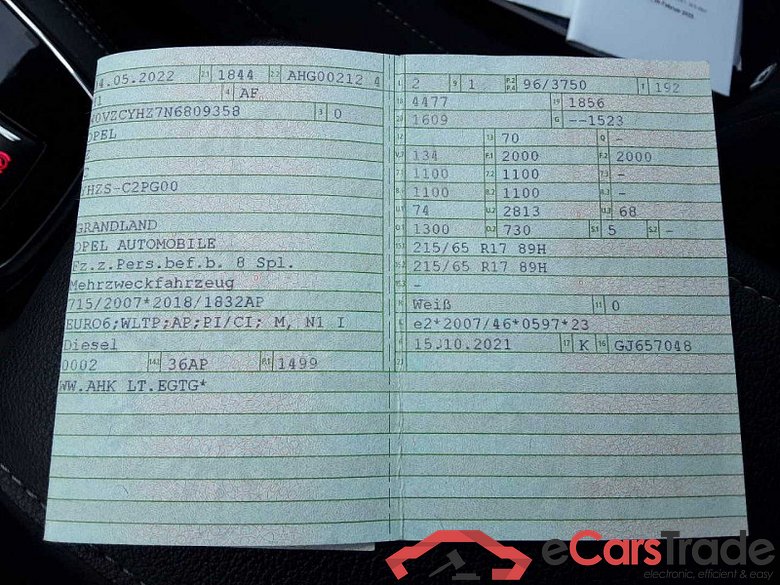 4.05.2022 2.1 1844 2.2 AHG00212 4
4 AF
0VZCYHZ7N6809358 3 0
OPEL
HZS-C2PG00
GRANDLAND
OPEL AUTOMOBILE
Fz.z.Pers.bef.b. 8 Spl.
Mehrzweckfahrzeug
715/2007*2018/1832AP
EURO6;WLTP;AP;PI/CI; M, N1 I
Diesel
0002 14.1 36AP P.1 1499
WW.AHK LT.EGTG*
L 2 9 1 P.2 P.4 96/3750 T 192
18 4477 19 1856
20 1609 G --1523
12 13 70 Q -
V.7 134 F.1 2000 F.2 2000
7.1 1100 7.2 1100 7.3 -
8.1 1100 8.2 1100 8.3 -
U.1 74 U.2 2813 U.3 68
O.1 1300 O.2 730 S.1 5 S.2 -
15.1 215/65 R17 89H
15.2 215/65 R17 89H
-
R Weiß 11 0
K e2*2007/46*0597*23
6 15.10.2021 17 K 16 GJ657048
21
eCarsTrade
electronic, efficient & easy